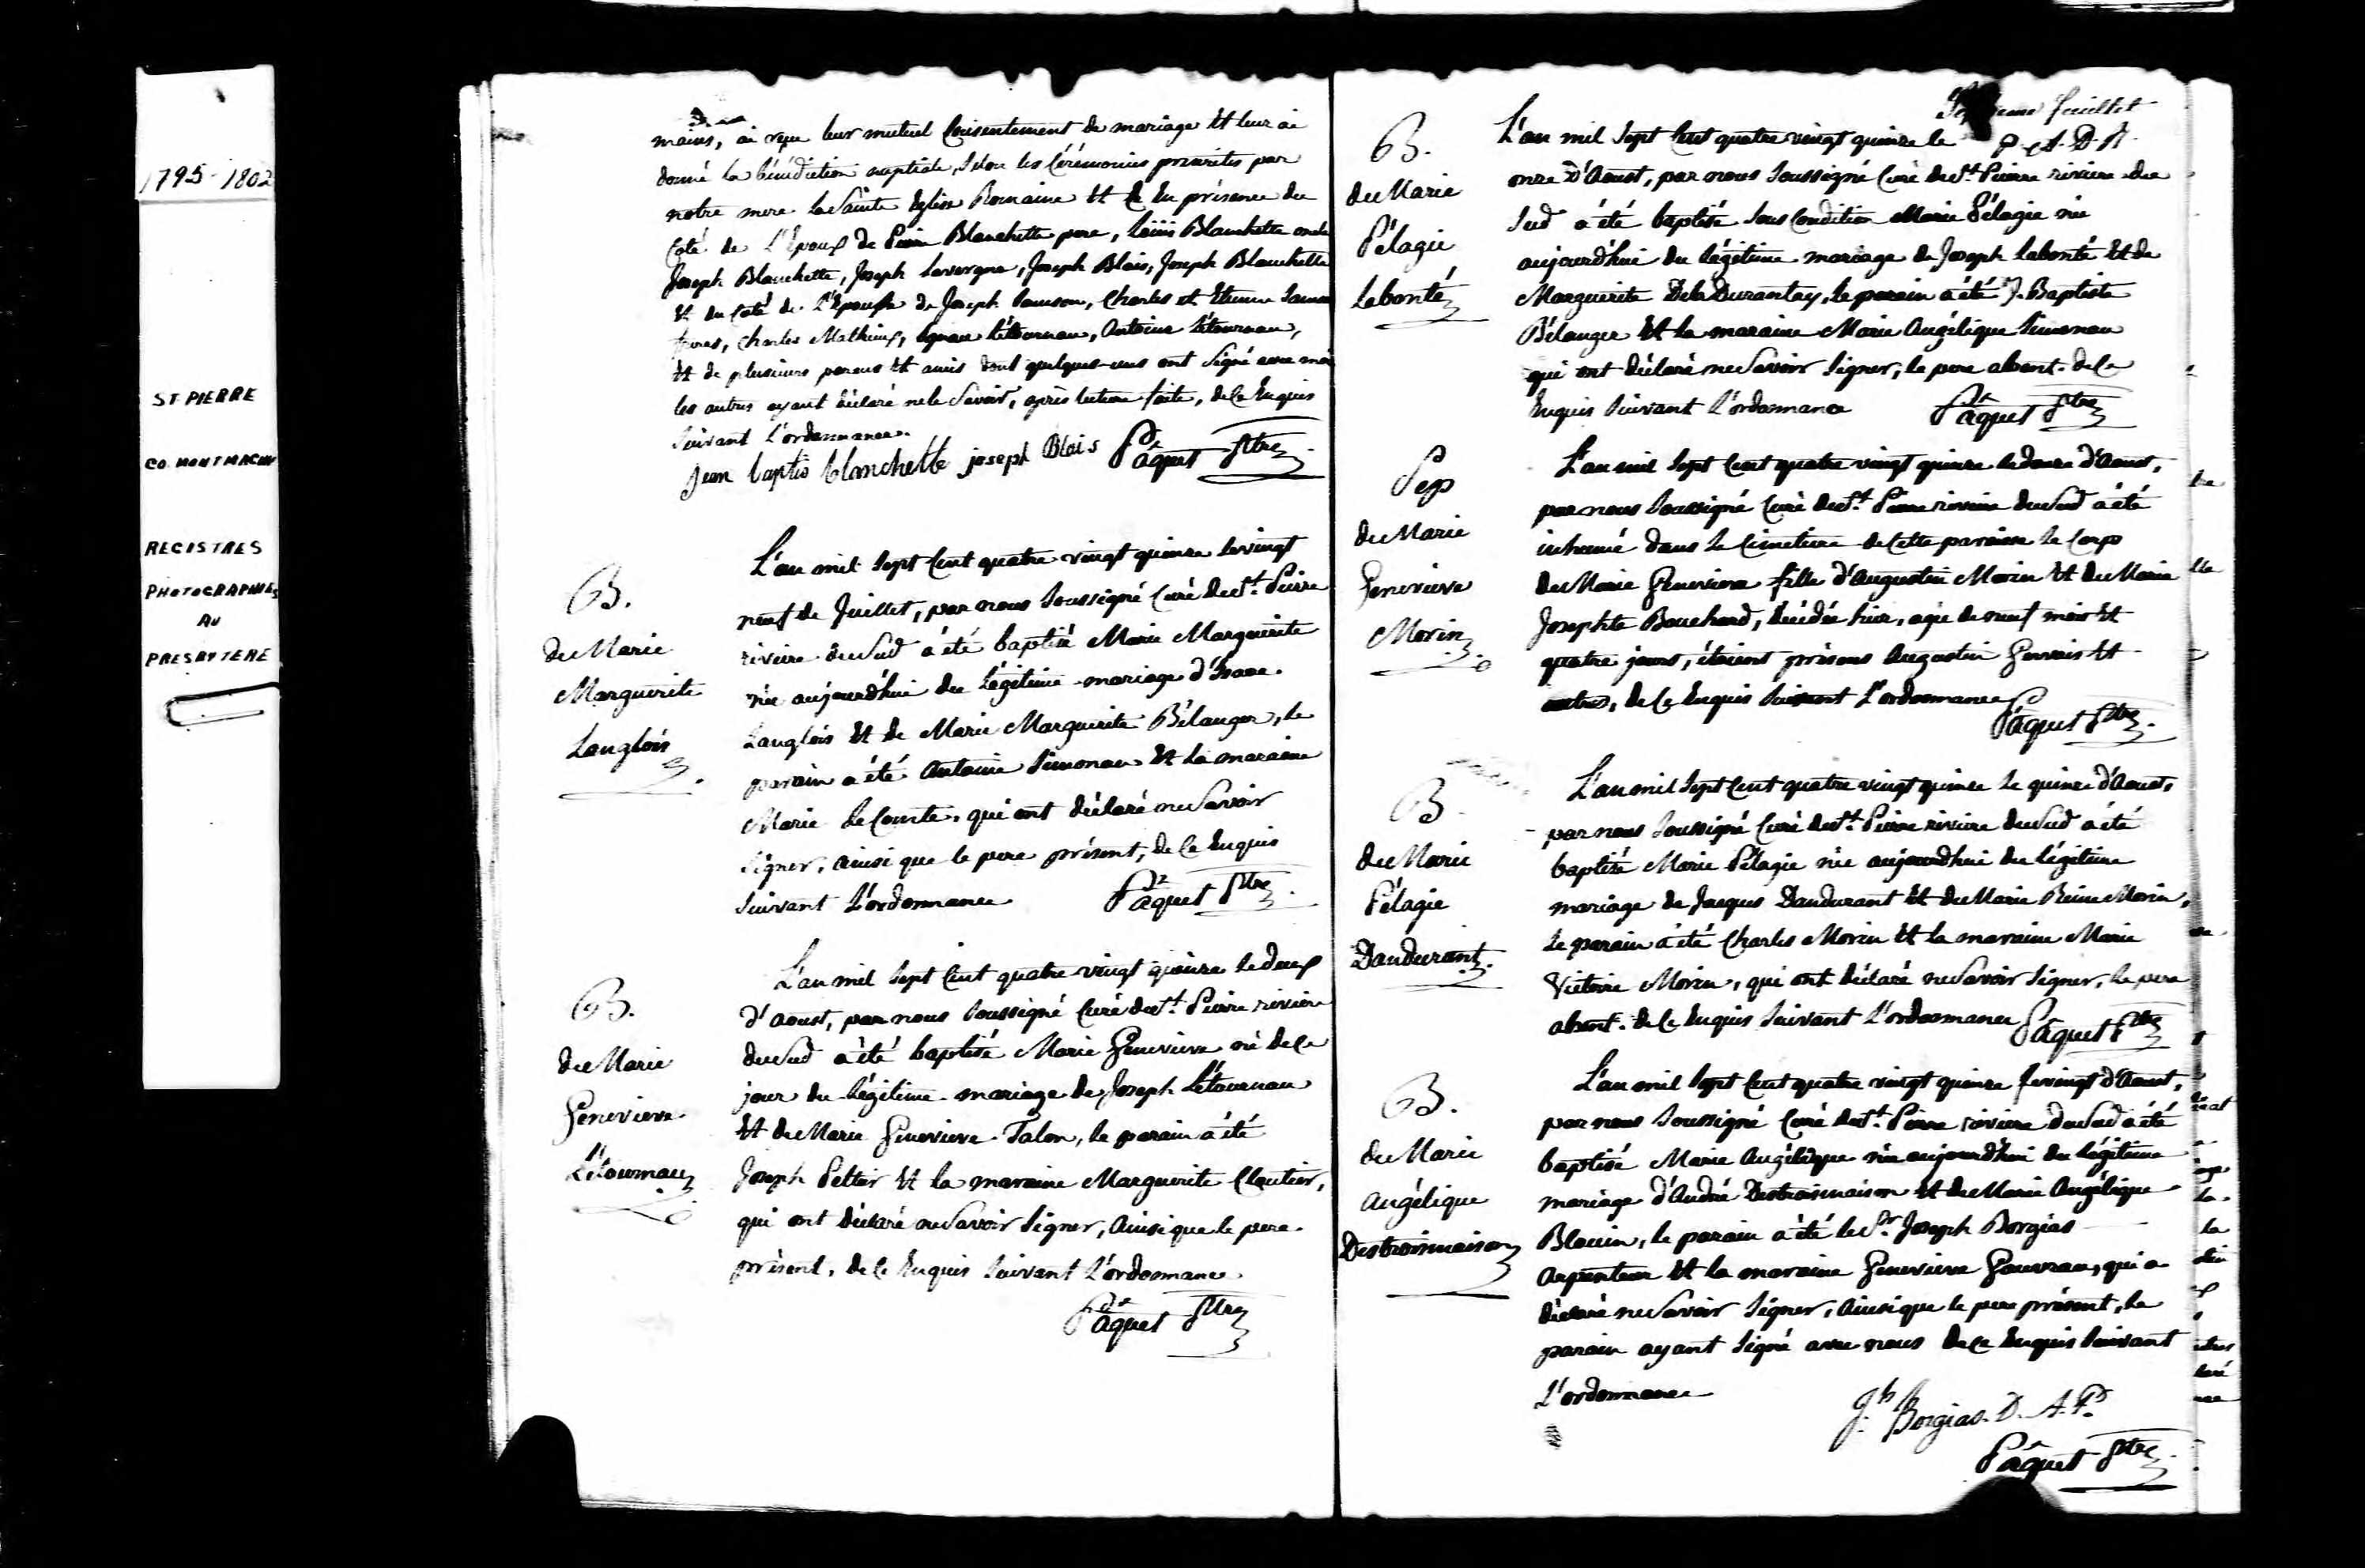 1795-1802
ST PIERRE
CO. MONTMAGNY
REGISTRES
PHOTOGRAPHIES
AU
PRESBYTERE
mains, ai reçu leur mutuel Consentement de mariage Et leur ai
donné la bénédiction nuptiale, Selon les Cérémonies prescrites par
notre mere la Sainte Eglise Romaine Et Ce En présence du
Coté de L'Epoux de Pierre Blanchette pere, Louis Blanchette oncle
Joseph Blanchette, Joseph Lavergne, Joseph Blais, Joseph Blanchette
Et du Coté de L'Epouse de Joseph Samson, Charles et Etienne Samson
freres, Charles Mathieux, Ignace Létournau, Antoine Létournau,
Et de plusieurs parens Et amis dont quelques-uns ont Signé avec moi
les autres ayant déclaré ne le Savoir, après lecture faite, de Ce Enquis
Suivant L'ordonnance.
Jean baptis blanchette joseph Blais Pâquet Ptre
B.
de Marie
Marguerite
Langlois
L'an mil Sept Cent quatre vingt quinze le vingt
neuf de Juillet, par nous Soussigné Curé de St. Pierre
riviere du Sud a été baptisé Marie Marguerite
née aujourd'hui du Légitime mariage d'Isaac
Langlois Et de Marie Marguerite Bélanger, le
parain a été Antoine Simonau Et la maraine
Marie Le Comte, qui ont déclaré ne Savoir
Signer, ainsi que le pere présent, de Ce Enquis
Suivant L'ordonnance Pâquet Ptre
B.
de Marie
Genevieve
Létournau
L'an mil Sept Cent quatre vingt quinze le deux
d'Aoust, par nous Soussigné Curé de St. Pierre riviere
du Sud a été baptisée Marie Genevieve né de Ce
jour du Légitime mariage de Joseph Létournau
Et de Marie Genevieve Talon, le parain a été
Joseph Peltier Et la maraine Marguerite Cloutier,
qui ont déclaré ne Savoir Signer, Ainsi que le pere
présent, de Ce Enquis Suivant L'ordonnance
Pâquet Ptre
feuillet
P. A. D. R.
B.
de Marie
Pélagie
Labonté
L'an mil Sept Cent quatre vingt quinze le
onze d'Aoust, par nous Soussigné Curé de St. Pierre riviere du
Sud a été baptisée Sous Condition Marie Pélagie née
aujourd'hui du légitime mariage de Joseph Labonté Et de
Marguerite De la Durantay, le parain a été J. Baptiste
Bélanger Et la maraine Marie Angélique Simonau
qui ont déclaré ne Savoir Signer, le pere absent. de Ce
Enquis Suivant L'ordonnance Pâquet Ptre
Sep
de Marie
Genevieve
Morin
L'an mil Sept Cent quatre vingt quinze le douze d'Aoust,
par nous Soussigné Curé de St. Pierre riviere du Sud a été
inhumé dans le Cimetiere de Cette paroisse le Corps
de Marie Genevieve fille d'Augustin Morin Et de Marie
Josephte Bouchard, décédée hier, agée de neuf mois Et
quatre jours, étoient présens Augustin Gervais Et
autres, de Ce Enquis Suivant L'ordonnance
Pâquet Ptre
B
de Marie
Pélagie
Dandurant
L'an mil Sept Cent quatre vingt quinze le quinze d'Aoust,
par nous Soussigné Curé de St. Pierre riviere du Sud a été
baptisée Marie Pélagie née aujourd'hui du légitime
mariage de Jacques Dandurant Et de Marie Reine Morin,
le parain a été Charles Morin Et la maraine Marie
Victoire Morin, qui ont déclaré ne Savoir Signer, le pere
absent. de Ce Enquis Suivant L'ordonnance Pâquet Ptre
B.
de Marie
Angélique
Destroismaison
L'an mil Sept Cent quatre vingt quinze le vingt d'Aoust,
par nous Soussigné Curé de St. Pierre riviere du Sud a été
baptisé Marie Angélique née aujourd'hui du légitime
mariage d'André Destroismaison Et de Marie Angélique
Blouin, le parain a été le Sr. Joseph Borgias
Arpenteur Et la maraine Genevieve Gauvrau, qui a
déclaré ne Savoir Signer, Ainsi que le pere présent, le
parain ayant Signé avec nous de Ce Enquis Suivant
L'ordonnance
Jh Borgias. D. A. P.
Pâquet Ptre